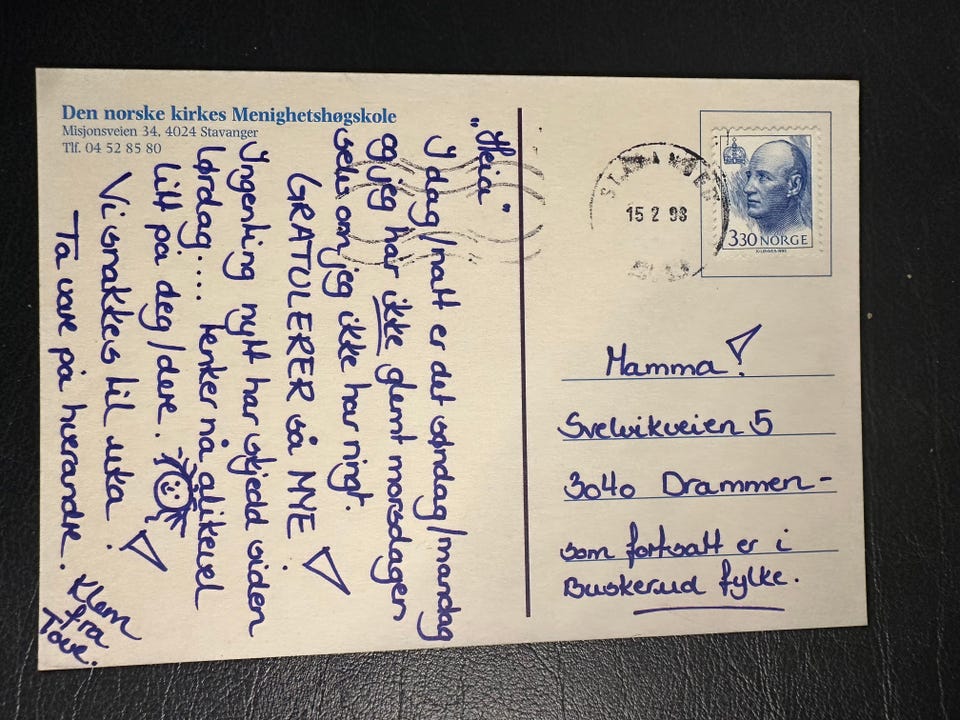 Den norske kirkes Menighetshøgskole
Misjonsveien 34, 4024 Stavanger
Tlf. 04 52 85 80
"Heia"
I dag/natt er det søndag/mandag
og jeg har ikke glemt morsdagen
selv om jeg ikke har ringt.
GRATULERER SÅ MYE!
Ingenting nytt har skjedd siden
lørdag.... tenker nå alikevel
litt på deg/dere.
Vi snakkes til uka!
Ta vare på hverandre.
Klem
fra
Tove.
STAVANGER
15 2 93
3.30 NORGE
Mamma!
Svelvikveien 5
3040 Drammen-
som fortsatt er i
Buskerud fylke.